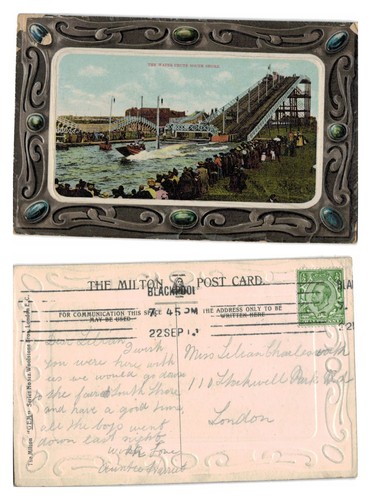 THE WATER CHUTE SOUTH SHORE
THE MILTON POST CARD.
BLACKPOOL
7. 45 PM
22 SEP 1
FOR COMMUNICATION THIS SPACE
MAY BE USED
THE ADDRESS ONLY TO BE
WRITTEN HERE
The Milton "GEM" Series No.
London E.C.
Dear Lillian
I wish
you were here with
us we would go across
to the fair South Shore
and have a good time
all the boys went
down last night
with love
Harriet
Miss Lilian Charlesworth
110 Stockwell Park Rd
London